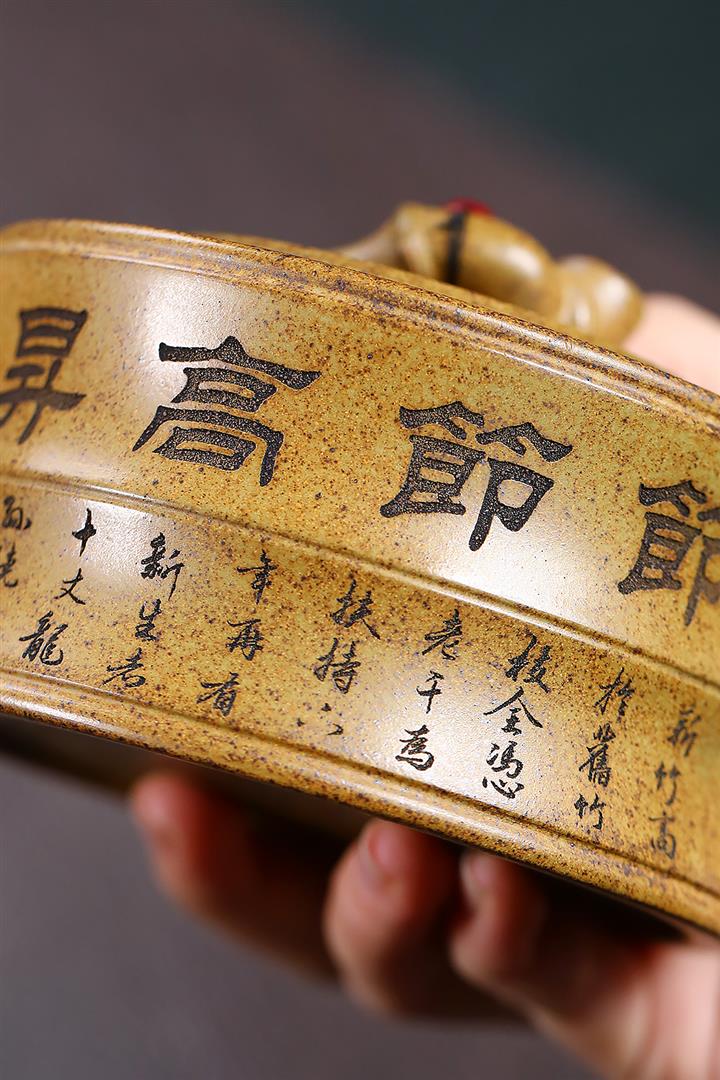 節節高昇
新竹高
於舊竹
枝全憑
老干為
扶持下
年再有
新生者
十丈龍
孫繞